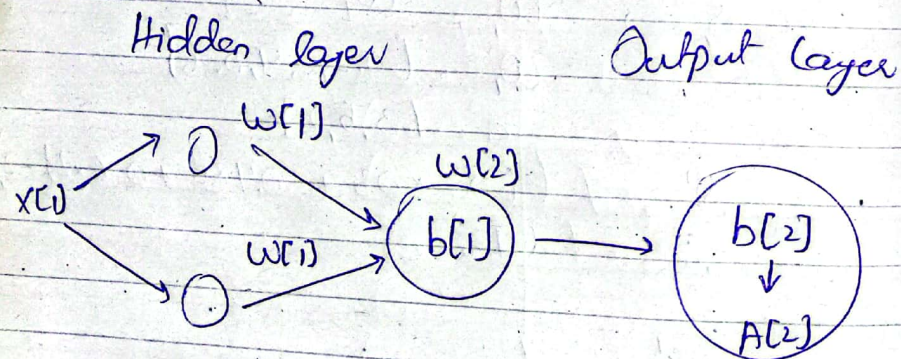 Hidden layer
Output layer
W[1]
W[2]
X[1]
b[1]
b[2]
W[1]
A[2]